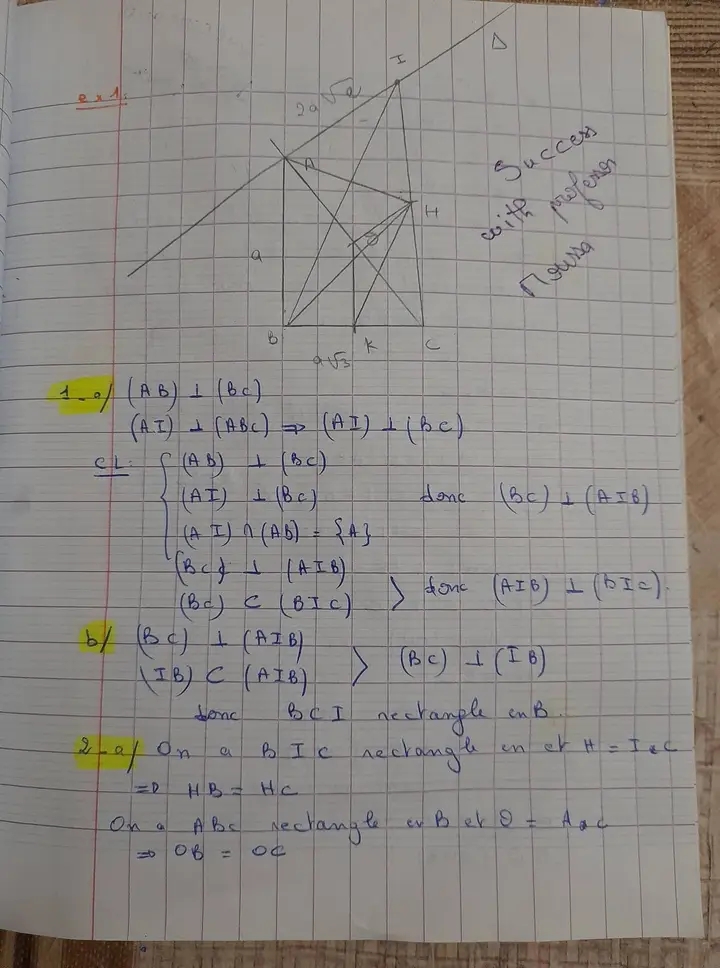 ex1.
Δ
I
2a√2
A
H
a
O
B
K
C
a√3
Success
with profesor
1_a/ (AB) ⊥ (BC)
(AI) ⊥ (ABC) ⇒ (AI) ⊥ (BC)
CL: { (AB) ⊥ (BC)
(AI) ⊥ (BC) donc (BC) ⊥ (AIB)
(AI) ∩ (AB) = {A}
(BC) ⊥ (AIB)
(BC) ⊂ (BIC) > donc (AIB) ⊥ (BIC).
b/ (BC) ⊥ (AIB)
(IB) ⊂ (AIB) > (BC) ⊥ (IB)
donc BCI rectangle en B.
2_a/ On a BIC rectangle en et H = I*C
⇒ HB = HC
On a ABC rectangle en B et O = A*C
⇒ OB = OC